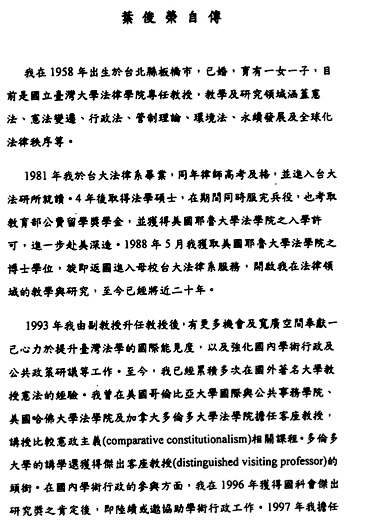 葉俊榮自傳
我在 1958 年出生於台北縣板橋市，已婚，育有一女一子，目
前是國立臺灣大學法律學院專任教授，教學及研究領域涵蓋憲
法、憲法變遷、行政法、管制理論、環境法、永續發展及全球化
法律秩序等。
1981 年我於台大法律系畢業，同年律師高考及格，並進入台大
法研所就讀。4 年後取得法學碩士，在期間同時服完兵役，也考取
教育部公費留學獎學金，並獲得美國耶魯大學法學院之入學許
可，進一步赴美深造。1988 年 5 月我獲取美國耶魯大學法學院之
博士學位，旋即返國進入母校台大法律系服務，開啟我在法律領
域的教學與研究，至今已經將近二十年。
1993 年我由副教授升任教授後，有更多機會及寬廣空間奉獻一
己心力於提升臺灣法學的國際能見度，以及強化國內學術行政及
公共政策研議等工作。至今，我已經累積多次在國外著名大學教
授憲法的經驗。我曾在美國哥倫比亞大學國際與公共事務學院、
美國哈佛大學法學院及加拿大多倫多大學法學院擔任客座教授，
講授比較憲政主義(comparative constitutionalism)相關課程。多倫多
大學的講學還獲得傑出客座教授(distinguished visiting professor)的
頭銜。在國內學術行政的參與方面，我在 1996 年獲得國科會傑出
研究獎之肯定後，即陸續或邀協助學術行政工作。1997 年我擔任